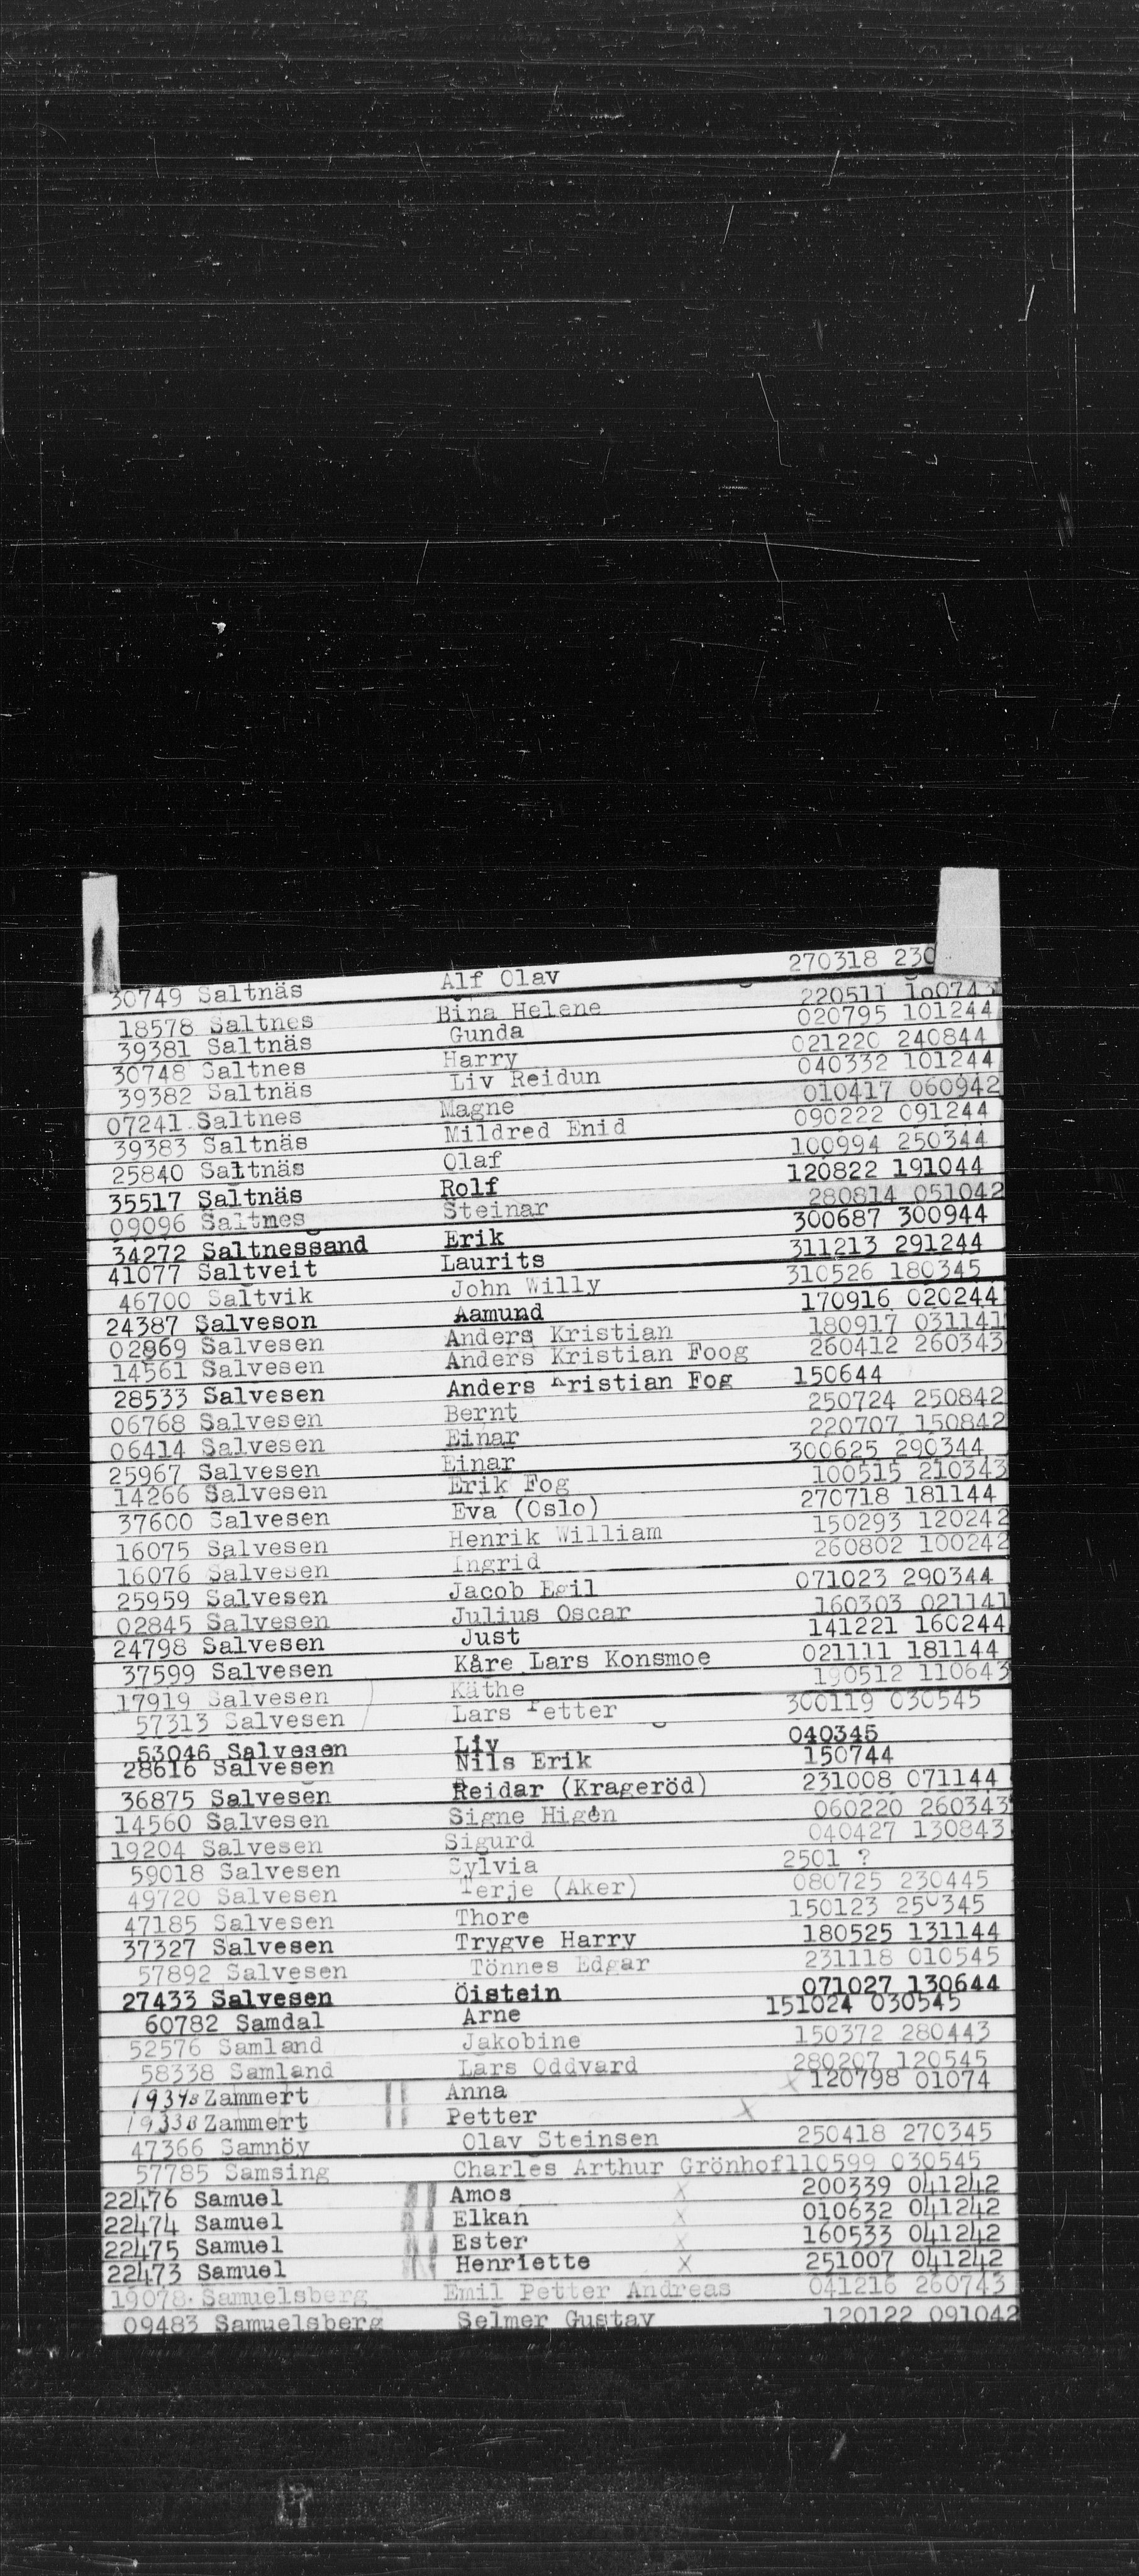 30749 Saltnäs Alf Olav 270318 230
18578 Saltnes Bina Helene 220511
39381 Saltnäs Gunda 020795 101244
30748 Saltnes Harry 021220 240844
39382 Saltnäs Liv Reidun 040332 101244
07241 Saltnes Magne 010417 060942
39383 Saltnäs Mildred Enid 090222 091244
25840 Saltnäs Olaf 100994 250344
35517 Saltnäs Rolf 120822 191044
09096 Saltmes Steinar 280814 051042
34272 Saltnessand Erik 300687 300944
41077 Saltveit Laurits 311213 291244
46700 Saltvik John Willy 310526 180345
24387 Salveson Aamund 170916 020244
02869 Salvesen Anders Kristian 180917 031141
14561 Salvesen Anders Kristian Foog 260412 260343
28533 Salvesen Anders Kristian Fog 150644
06768 Salvesen Bernt 250724 250842
06414 Salvesen Einar 220707 150842
25967 Salvesen Einar 300625 290344
14266 Salvesen Erik Fog 100515 210343
37600 Salvesen Eva (Oslo) 270718 181144
16075 Salvesen Henrik William 150293 120242
16076 Salvesen Ingrid 260802 100242
25959 Salvesen Jacob Egil 071023 290344
02845 Salvesen Julius Oscar 160303 021141
24798 Salvesen Just 141221 160244
37599 Salvesen Kåre Lars Konsmoe 021111 181144
17919 Salvesen Käthe 190512 110643
57313 Salvesen Lars Petter 300119 030545
53046 Salvesen Liv 040345
28616 Salvesen Nils Erik 150744
36875 Salvesen Reidar (Krageröd) 231008 071144
14560 Salvesen Signe Higen 060220 260343
19204 Salvesen Sigurd 040427 130843
59018 Salvesen Sylvia 2501 ?
49720 Salvesen Terje (Aker) 080725 230445
47185 Salvesen Thore 150123 250345
37327 Salvesen Trygve Harry 180525 131144
57892 Salvesen Tönnes Edgar 231118 010545
27433 Salvesen Öistein 071027 130644
60782 Samdal Arne 151024 030545
52576 Samland Jakobine 150372 280443
58338 Samland Lars Oddvard 280207 120545
Zammert Anna X 120798 01074
Zammert Petter X
47366 Samnöy Olav Steinsen 250418 270345
57785 Samsing Charles Arthur Grönhof110599 030545
22476 Samuel Amos X 200339 041242
22474 Samuel Elkan X 010632 041242
22475 Samuel Ester X 160533 041242
22473 Samuel Henriette X 251007 041242
19078. Samuelsberg Emil Petter Andreas 041216 260743
09483 Samuelsberg Selmer Gustav 120122 091042